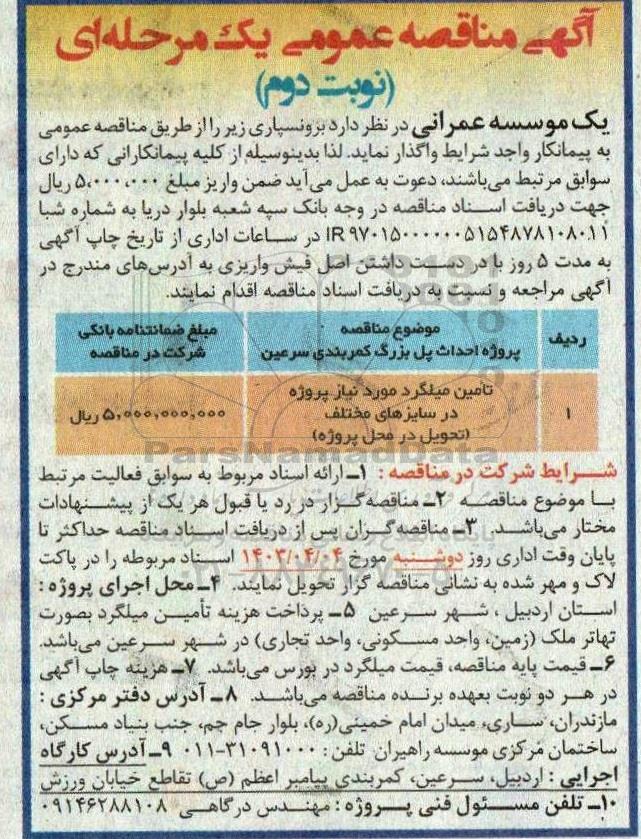 آگهی مناقصه عمومی یک مرحله‌ای
(نوبت دوم)
یک موسسه عمرانی در نظر دارد برونسپاری زیر را از طریق مناقصه عمومی
به پیمانکار واجد شرایط واگذار نماید. لذا بدینوسیله از کلیه پیمانکارانی که دارای
سوابق مرتبط می‌باشند، دعوت به عمل می‌آید ضمن واریز مبلغ ۵،۰۰۰،۰۰۰ ریال
جهت دریافت اسناد مناقصه در وجه بانک سپه شعبه بلوار دریا به شماره شبا
IR۹۷۰۱۵۰۰۰۰۰۰۵۱۵۴۸۷۸۱۰۸۰۱۱ در ساعات اداری از تاریخ چاپ آگهی
به مدت ۵ روز با در دست داشتن اصل فیش واریزی به آدرس‌های مندرج در
آگهی مراجعه و نسبت به دریافت اسناد مناقصه اقدام نمایند.
ردیف
موضوع مناقصه
پروژه احداث پل بزرگ کمربندی سرعین
مبلغ ضمانتنامه بانکی
شرکت در مناقصه
۱
تأمین میلگرد مورد نیاز پروژه
در سایزهای مختلف
(تحویل در محل پروژه)
۵,۰۰۰,۰۰۰,۰۰۰ ریال
ParsNamadData
شرایط شرکت در مناقصه : ۱ــ ارائه اسناد مربوط به سوابق فعالیت مرتبط
با موضوع مناقصه ۲ــ مناقصه‌گزار در رد یا قبول هر یک از پیشنهادات
مختار می‌باشد. ۳ــ مناقصه‌گران پس از دریافت اسناد مناقصه حداکثر تا
پایان وقت اداری روز دوشنبه مورخ ۱۴۰۳/۰۴/۰۴ اسناد مربوطه را در پاکت
لاک و مهر شده به نشانی مناقصه گزار تحویل نمایند. ۴ــ محل اجرای پروژه :
استان اردبیل ، شهر سرعین ۵ــ پرداخت هزینه تأمین میلگرد بصورت
تهاتر ملک (زمین، واحد مسکونی، واحد تجاری) در شهر سرعین می‌باشد.
۶ــ قیمت پایه مناقصه، قیمت میلگرد در بورس می‌باشد. ۷ــ هزینه چاپ آگهی
در هر دو نوبت بعهده برنده مناقصه می‌باشد. ۸ــ آدرس دفتر مرکزی :
مازندران، ساری، میدان امام خمینی(ره)، بلوار جام جم، جنب بنیاد مسکن،
ساختمان مرکزی موسسه راهیران تلفن : ۳۱۰۹۱۰۰۰-۰۱۱ ۹ــ آدرس کارگاه
اجرایی : اردبیل، سرعین، کمربندی پیامبر اعظم (ص) تقاطع خیابان ورزش
۱۰ــ تلفن مسئول فنی پروژه : مهندس درگاهی ۰۹۱۴۶۲۸۸۱۰۸